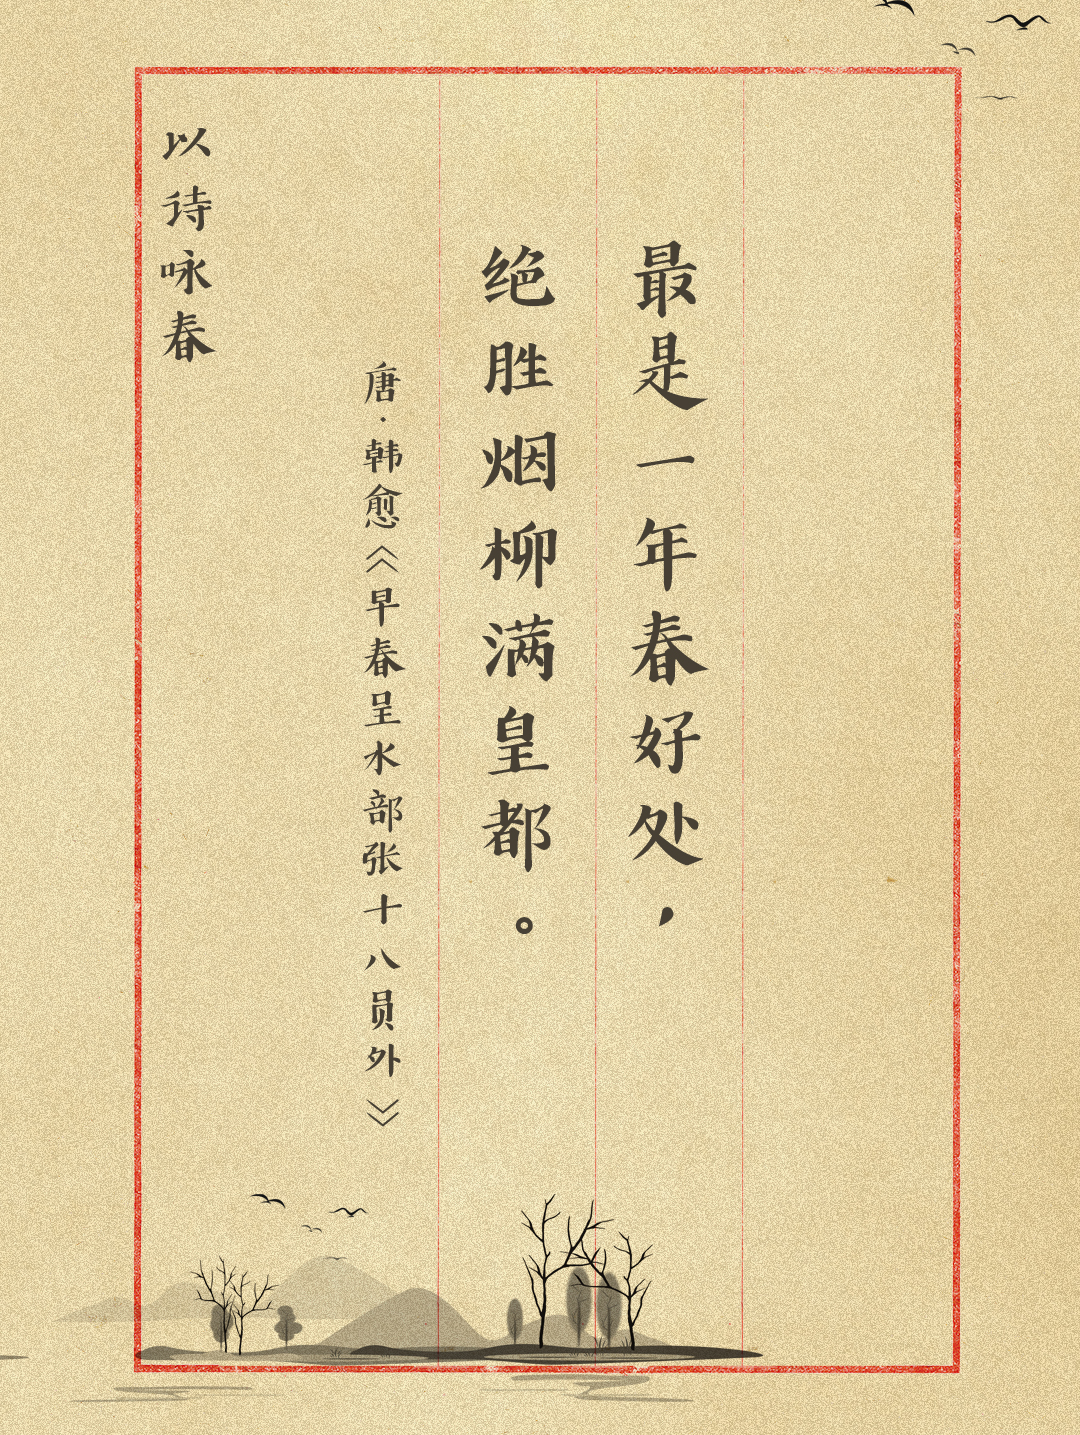 最是一年春好处，
绝胜烟柳满皇都。
唐·韩愈《早春呈水部张十八员外》
以诗咏春